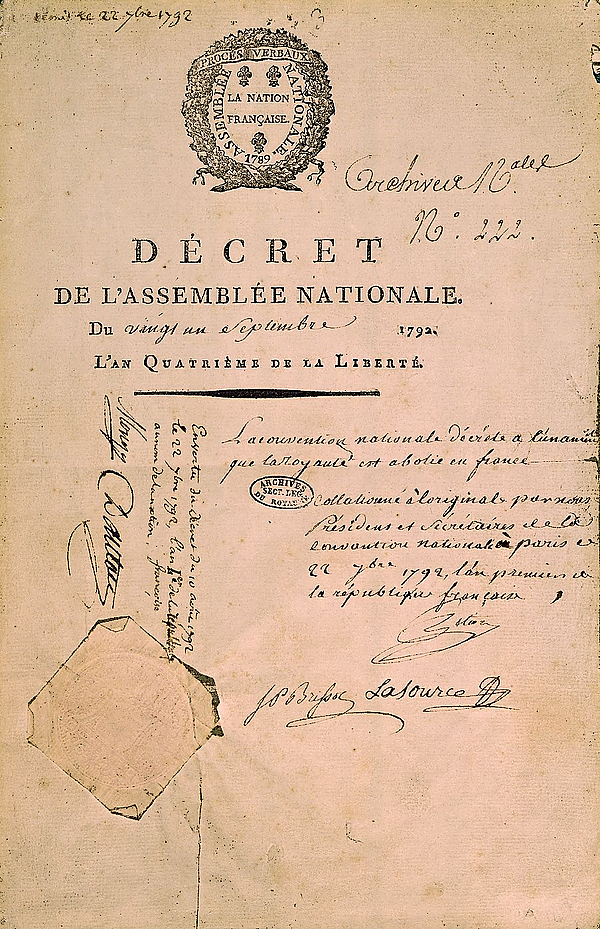 le 22 7bre 1792
PROCÈS VERBAUX
ASSEMBLÉE NATIONALE.
LA NATION
FRANÇAISE.
1789
Archives Nales
N° 222.
DÉCRET
DE L'ASSEMBLÉE NATIONALE.
Du vingt un Septembre 1792.
L'AN QUATRIÈME DE LA LIBERTÉ.
La convention nationale décrète à l'unanimité
que la Royauté est abolie en france
ARCHIVES
SECT. LEG.
DU ROYAUME
Collationné à l'original par nous
Président et Secrétaires de la
convention nationale à paris ce
22 7bre 1792, l'an premier de
la république françoise
J P Brissot Lasource
En vertu du décret du 10 août 1792
le 22 7bre 1792 l'an 1er de la République
au nom de la nation françoise
Monge
Danton